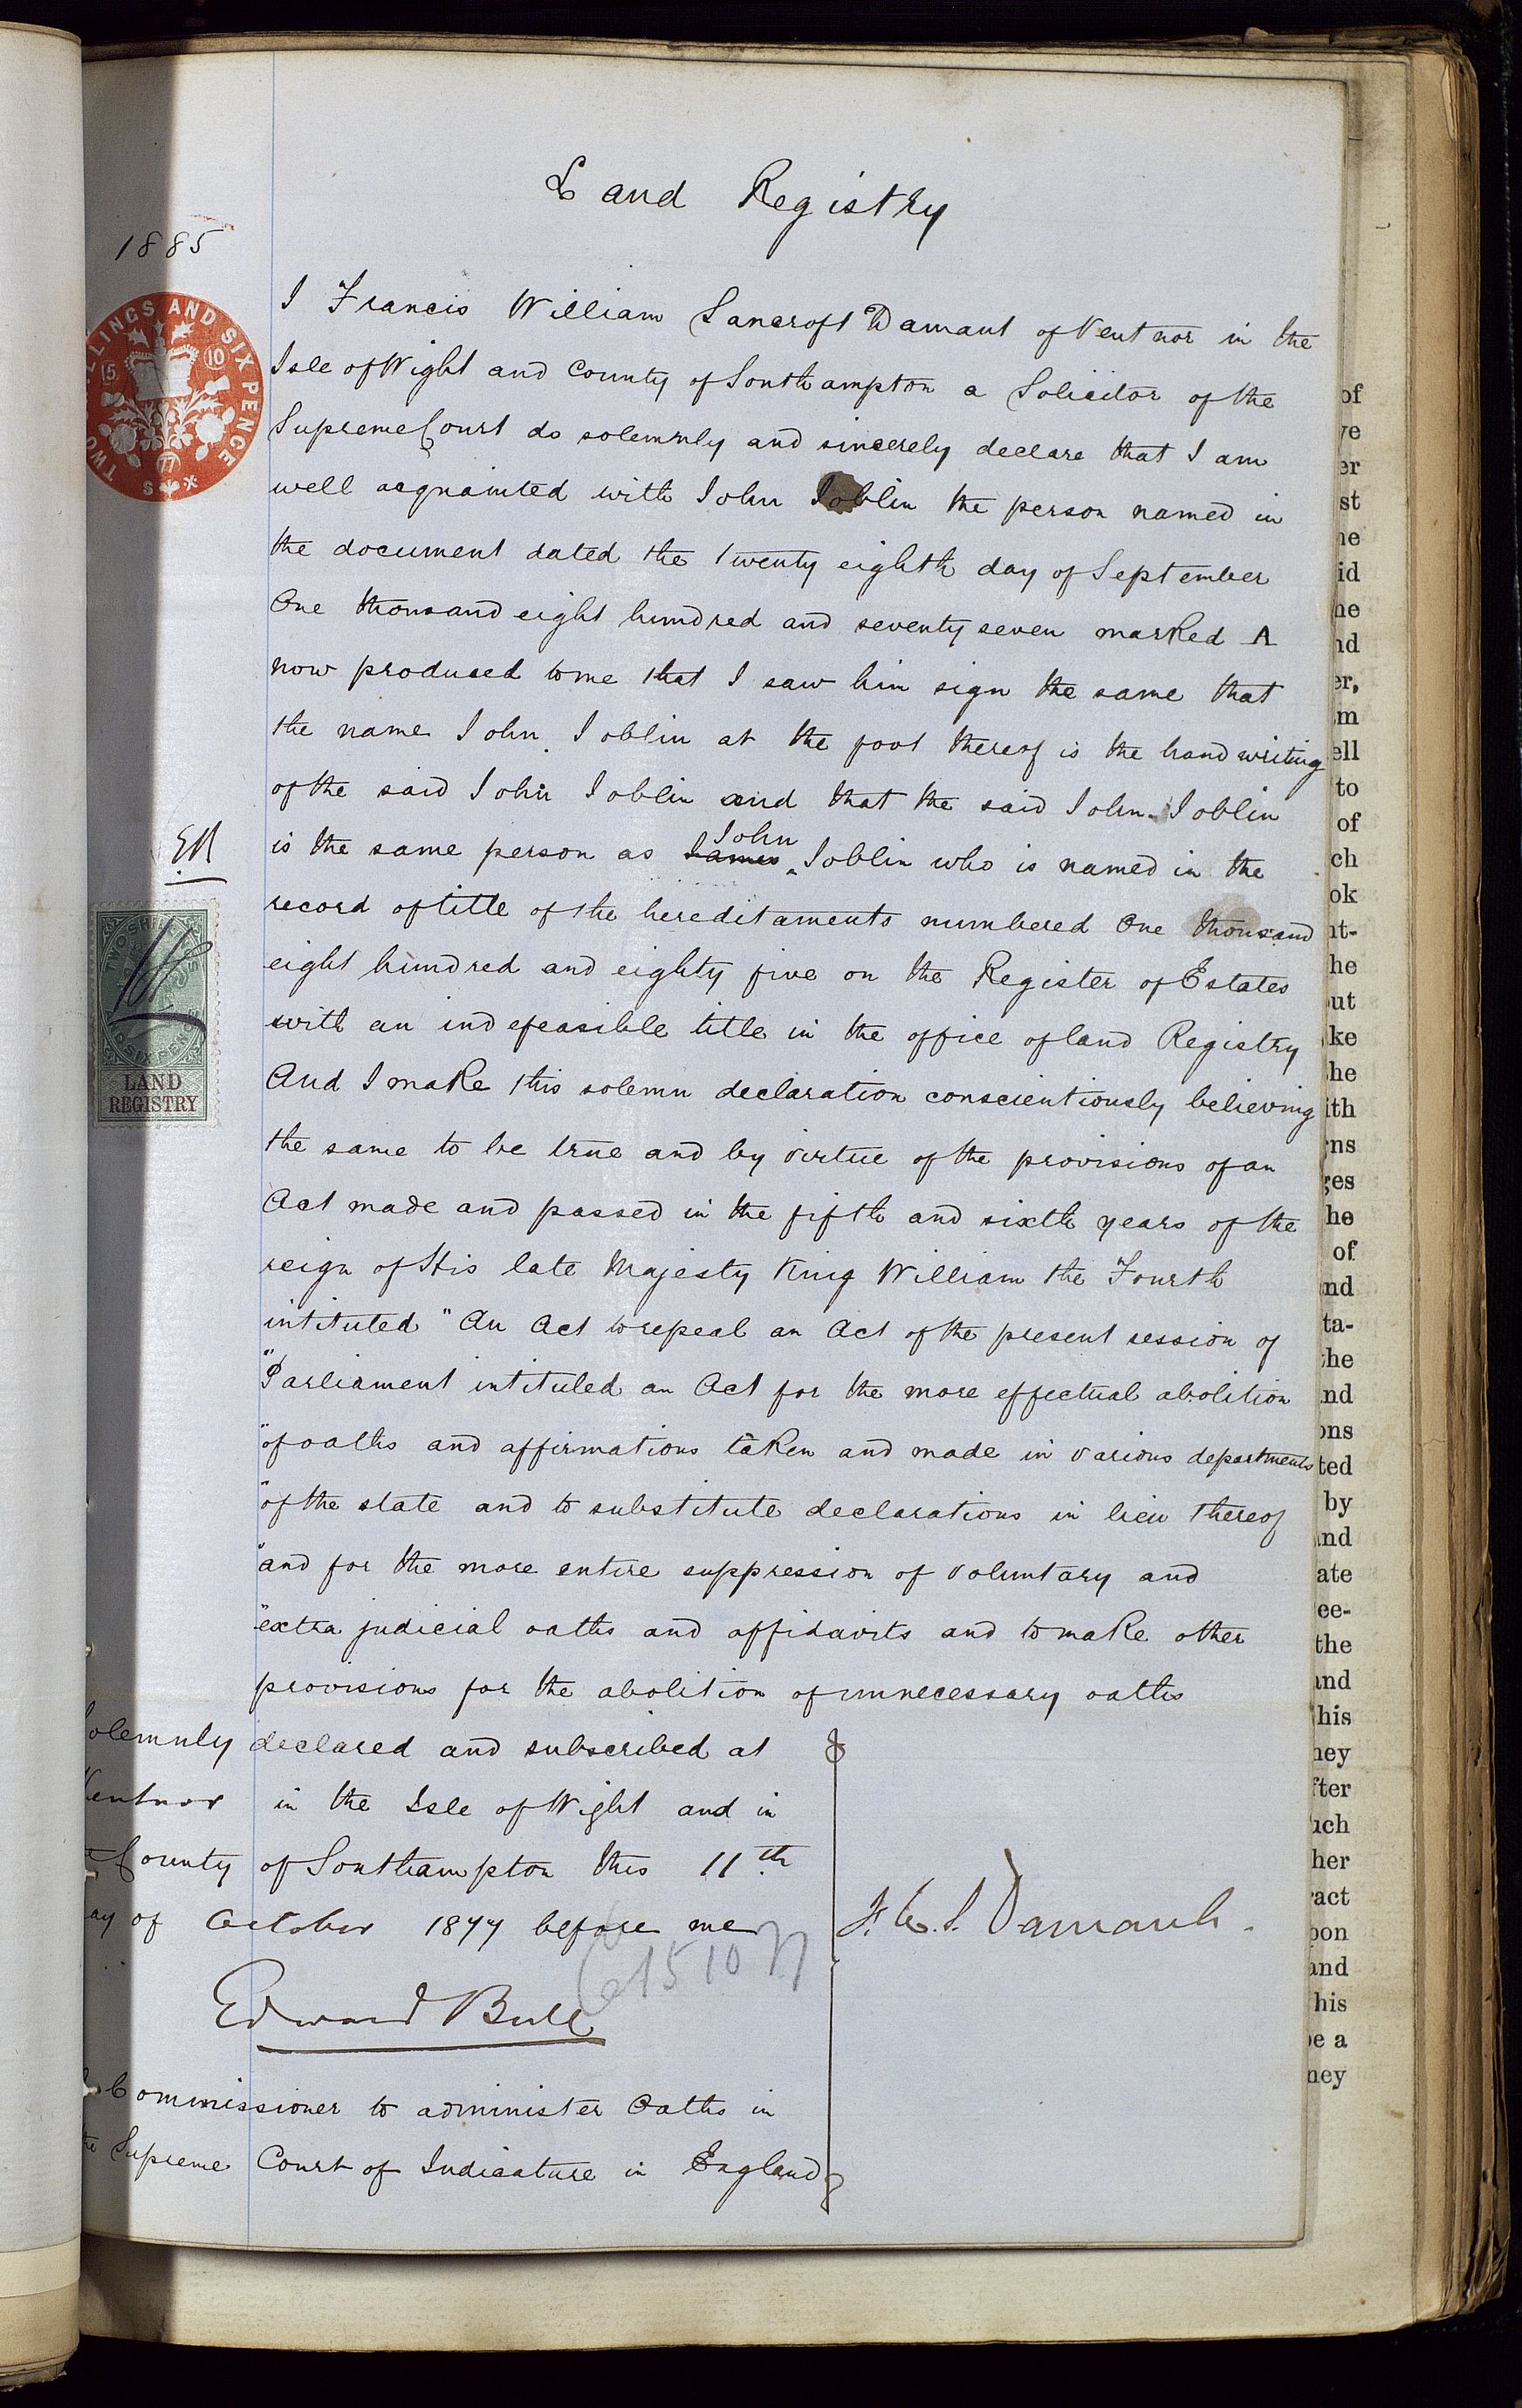 Land Registry
1885
TWO SHILLINGS AND SIX PENCE
15
10
77
S
I Francis William Sancroft Damant of Ventnor in the
Isle of Wight and County of Southampton a Solicitor of the
Supreme Court do solemnly and sincerely declare that I am
well acquainted with John Joblin the person named in
the document dated the twenty eighth day of September
One thousand eight hundred and seventy seven marked A
now produced to me that I saw him sign the same that
the name John Joblin at the foot thereof is the handwriting
of the said John Joblin and that the said John Joblin
EB
John
is the same person as James Joblin who is named in the
record of title of the hereditaments numbered One thousand
eight hundred and eighty five on the Register of Estates
with an indefeasible title in the office of land Registry
LAND
REGISTRY
And I make this solemn declaration conscientiously believing
the same to be true and by virtue of the provisions of an
Act made and passed in the fifth and sixth years of the
reign of His late Majesty King William the Fourth
intituted "An Act to repeal an Act of the present session of
"Parliament intituled an Act for the more effectual abolition
"of oaths and affirmations taken and made in various departments
"of the state and to substitute declarations in lieu thereof
"and for the more entire suppression of voluntary and
"extra judicial oaths and affidavits and to make other
provisions for the abolition of unnecessary oaths
olemnly declared and subscribed at
entnor in the Isle of Wight and in
County of Southampton this 11th
ay of October 1877 before me
F. W. S. Damant.
15 10 77
Edward Bull
Commissioner to administer Oaths in
Supreme Court of Judicature in England
of
ve
er
st
ne
id
he
nd
er,
m
ell
to
of
ch
ok
nt-
he
ut
ke
he
ith
ns
ges
he
of
nd
ta-
the
nd
ons
ted
by
nd
ate
ee-
the
and
his
ney
fter
uch
her
ract
pon
and
his
be a
ney